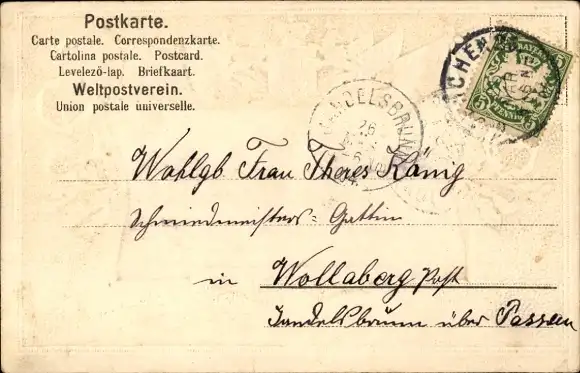 Postkarte.
Carte postale. Correspondenzkarte.
Cartolina postale. Postcard.
Levelező-lap. Briefkaart.
Weltpostverein.
Union postale universelle.
BAYERN
5 5
PFENNIG
26
Wohlgb Frau Theres König
Schmiedmeisters: Gattin
in Wollaberg Post
Jandelsbrunn über Passau